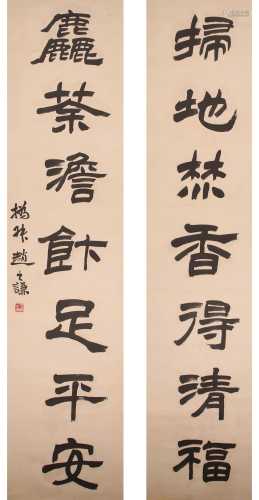 掃地焚香得清福
麤茶澹飰足平安
撝叔趙之謙